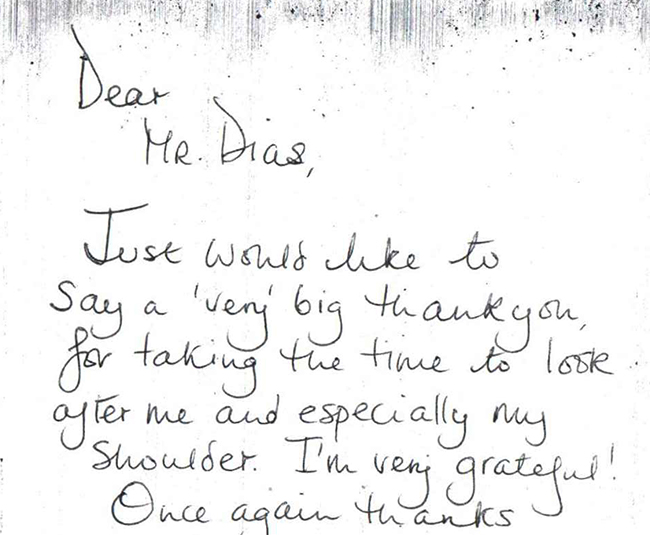 Dear
Mr. Dias,
Just would like to
say a 'very' big thankyou,
for taking the time to look
after me and especially my
shoulder. I'm very grateful!
Once again thanks